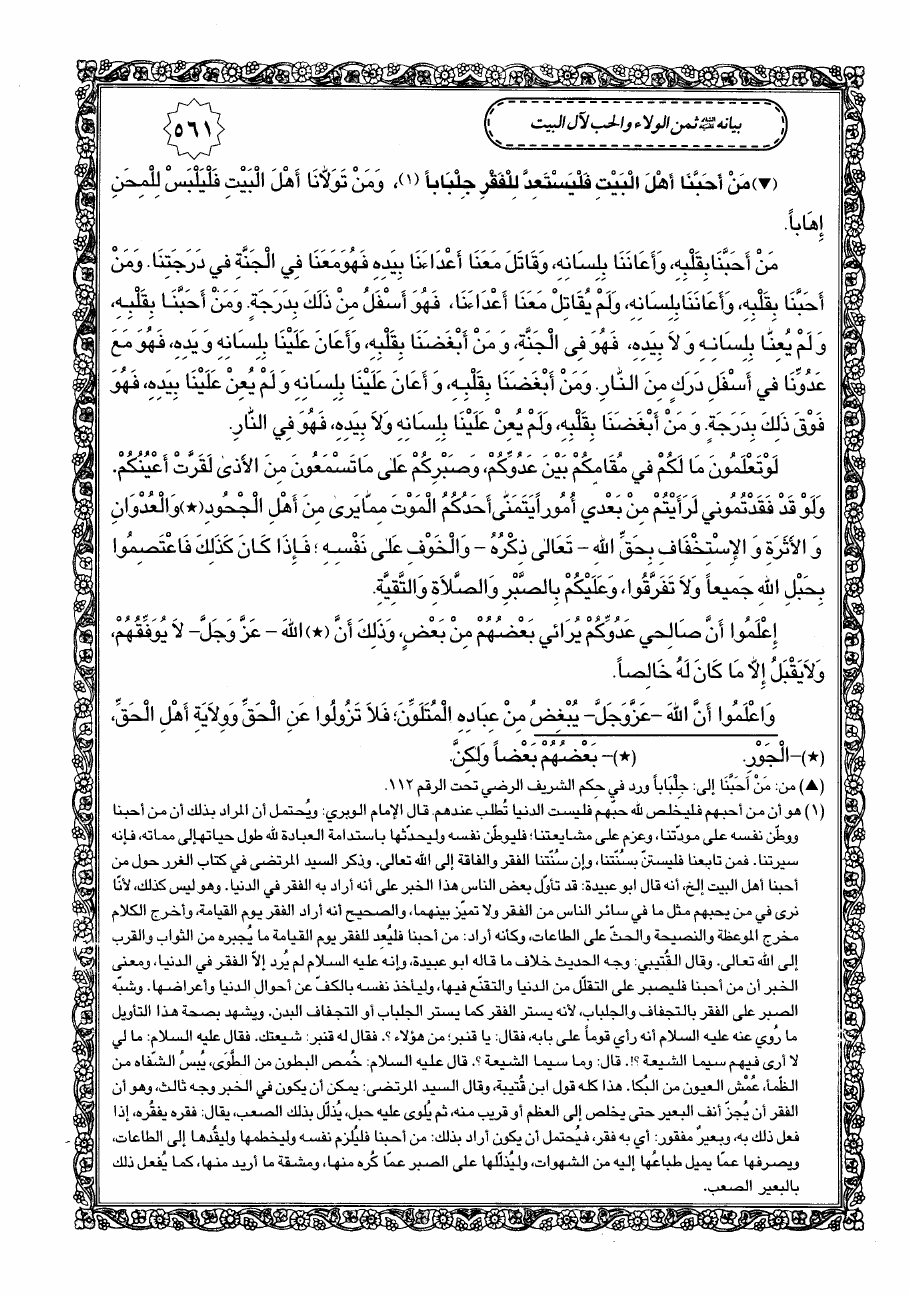 بيانه عليه السلام ثمن الولاء والحب لآل البيت
٥٦١
(▼) مَنْ أَحَبَّنَا أَهْلَ الْبَيْتِ فَلْيَسْتَعِدَّ لِلْفَقْرِ جِلْبَاباً (١)، وَمَنْ تَوَلاَّنَا أَهْلَ الْبَيْتِ فَلْيَلْبَسْ لِلْمِحَنِ
إِهَاباً.
مَنْ أَحَبَّنَا بِقَلْبِهِ، وَأَعَانَنَا بِلِسَانِهِ، وَقَاتَلَ مَعَنَا أَعْدَاءَنَا بِيَدِهِ فَهُوَ مَعَنَا فِي الْجَنَّةِ في دَرَجَتِنَا. وَمَنْ
أَحَبَّنَا بِقَلْبِهِ، وَأَعَانَنَا بِلِسَانِهِ، وَلَمْ يُقَاتِلْ مَعَنَا أَعْدَاءَنَا، فَهُوَ أَسْفَلُ مِنْ ذَلِكَ بِدَرَجَةٍ. وَمَنْ أَحَبَّنَا بِقَلْبِهِ،
وَلَمْ يُعِنَّا بِلِسَانِهِ وَلاَ بِيَدِهِ، فَهُوَ فِي الْجَنَّةِ، وَمَنْ أَبْغَضَنَا بِقَلْبِهِ، وَأَعَانَ عَلَيْنَا بِلِسَانِهِ وَيَدِهِ، فَهُوَ مَعَ
عَدُوِّنَا في أَسْفَلِ دَرَكٍ مِنَ النَّارِ. وَمَنْ أَبْغَضَنَا بِقَلْبِهِ، وَأَعَانَ عَلَيْنَا بِلِسَانِهِ وَلَمْ يُعِنْ عَلَيْنَا بِيَدِهِ، فَهُوَ
فَوْقَ ذَلِكَ بِدَرَجَةٍ. وَمَنْ أَبْغَضَنَا بِقَلْبِهِ، وَلَمْ يُعِنْ عَلَيْنَا بِلِسَانِهِ وَلاَ بِيَدِهِ، فَهُوَ فِي النَّارِ.
لَوْ تَعْلَمُونَ مَا لَكُمْ في مُقَامِكُمْ بَيْنَ عَدُوِّكُمْ، وَصَبْرِكُمْ عَلى مَا تَسْمَعُونَ مِنَ الأَذى لَقَرَّتْ أَعْيُنُكُمْ.
وَلَوْ قَدْ فَقَدْتُمُوني لَرَأَيْتُمْ مِنْ بَعْدي أُمُوراً يَتَمَنّى أَحَدُكُمُ الْمَوْتَ مِمّا يَرى مِنْ أَهْلِ الْجُحُودِ(★) وَالْعُدْوَانِ
وَالأَثَرَةِ وَالإِسْتِخْفَافِ بِحَقِّ اللهِ - تَعَالى ذِكْرُهُ - وَالْخَوْفِ عَلى نَفْسِهِ؛ فَإِذَا كَانَ كَذَلِكَ فَاعْتَصِمُوا
بِحَبْلِ اللهِ جَميعاً وَلاَ تَفَرَّقُوا، وَعَلَيْكُمْ بِالصَّبْرِ وَالصَّلاَةِ وَالتَّقِيَّةِ.
إِعْلَمُوا أَنَّ صَالِحي عَدُوِّكُمْ يُرَائي بَعْضُهُمْ مِنْ بَعْضٍ، وَذَلِكَ أَنَّ (★) اللهَ - عَزَّ وَجَلَّ - لاَ يُوَفِّقُهُمْ،
وَلاَ يَقْبَلُ إِلاَّ مَا كَانَ لَهُ خَالِصاً.
وَاعْلَمُوا أَنَّ اللهَ - عَزَّ وَجَلَّ - يُبْغِضُ مِنْ عِبَادِهِ الْمُتَلَوِّنَ؛ فَلاَ تَزُولُوا عَنِ الْحَقِّ وَوِلاَيَةِ أَهْلِ الْحَقِّ،
(★)-الْجَوْرِ. (★)- بَعْضُهُمْ بَعْضاً وَلكِنَّ.
(▲) من: مَنْ أَحَبَّنَا إلى: جِلْبَاباً ورد في حِكم الشريف الرضي تحت الرقم ١١٢.
(١) هو أن من أحبهم فليخلص لله حبّهم فليست الدنيا تُطلب عندهم. قال الإمام الوبري: ويُحتمل أن المراد بذلك أن من أحبنا
ووطّن نفسه على مودّتنا، وعزم على مشايعتنا؛ فليوطّن نفسه وليحدّثها باستدامة العبادة لله طول حياتها إلى مماته، فإنه
سيرتنا. فمن تابعنا فليستنّ بسنّتنا، وإن سنّتنا الفقر والفاقة إلى الله تعالى. وذكر السيد المرتضى في كتاب الغرر حول من
أحبنا أهل البيت إلخ، أنه قال ابو عبيدة: قد تأوّل بعض الناس هذا الخبر على أنه أراد به الفقر في الدنيا. وهو ليس كذلك، لأنّا
نرى في من يحبهم مثل ما في سائر الناس من الفقر ولا تميّز بينهما، والصحيح أنه أراد الفقر يوم القيامة، وأخرج الكلام
مخرج الموعظة والنصيحة والحثّ على الطاعات، وكأنه أراد: من أحبنا فليُعِد للفقر يوم القيامة ما يُجبره من الثواب والقرب
إلى الله تعالى. وقال القُتيبي: وجه الحديث خلاف ما قاله ابو عبيدة، وإنه عليه السلام لم يُرد إلاّ الفقر في الدنيا، ومعنى
الخبر أن من أحبنا فليصبر على التقلّل من الدنيا والتقنّع فيها، وليأخذ نفسه بالكفّ عن أحوال الدنيا وأعراضها. وشبّه
الصبر على الفقر بالتجفاف والجلباب، لأنه يستر الفقر كما يستر الجلباب أو التجفاف البدن. ويشهد بصحة هذا التأويل
ما رُوي عنه عليه السلام أنه رأي قوماً على بابه، فقال: يا قنبر؛ من هؤلاء ؟. فقال له قنبر: شيعتك. فقال عليه السلام: ما لي
لا أرى فيهم سيما الشيعة ؟!. قال: وما سيما الشيعة ؟. قال عليه السلام: خُمص البطون من الطَّوَى، يُبسُ الشّفاه من
الظّمأ، عُمْش العيون من البُكا. هذا كله قول ابن قُتيبة، وقال السيد المرتضى: يمكن أن يكون في الخبر وجه ثالث، وهو أن
الفقر أن يُجزّ أنف البعير حتى يخلص إلى العظم أو قريب منه، ثم يُلوى عليه حبل، يُذلّل بذلك الصعب، يقال: فقره يفقُره، إذا
فعل ذلك به، وبعيرٌ مفقور: أي به فقر، فيُحتمل أن يكون أراد بذلك: من أحبنا فليُلزم نفسه وليخطمها وليقُدها إلى الطاعات،
ويصرفها عمّا يميل طباعُها إليه من الشهوات، وليُذلّلها على الصبر عمّا كُره منها، ومشقة ما أريد منها، كما يُفعل ذلك
بالبعير الصعب.